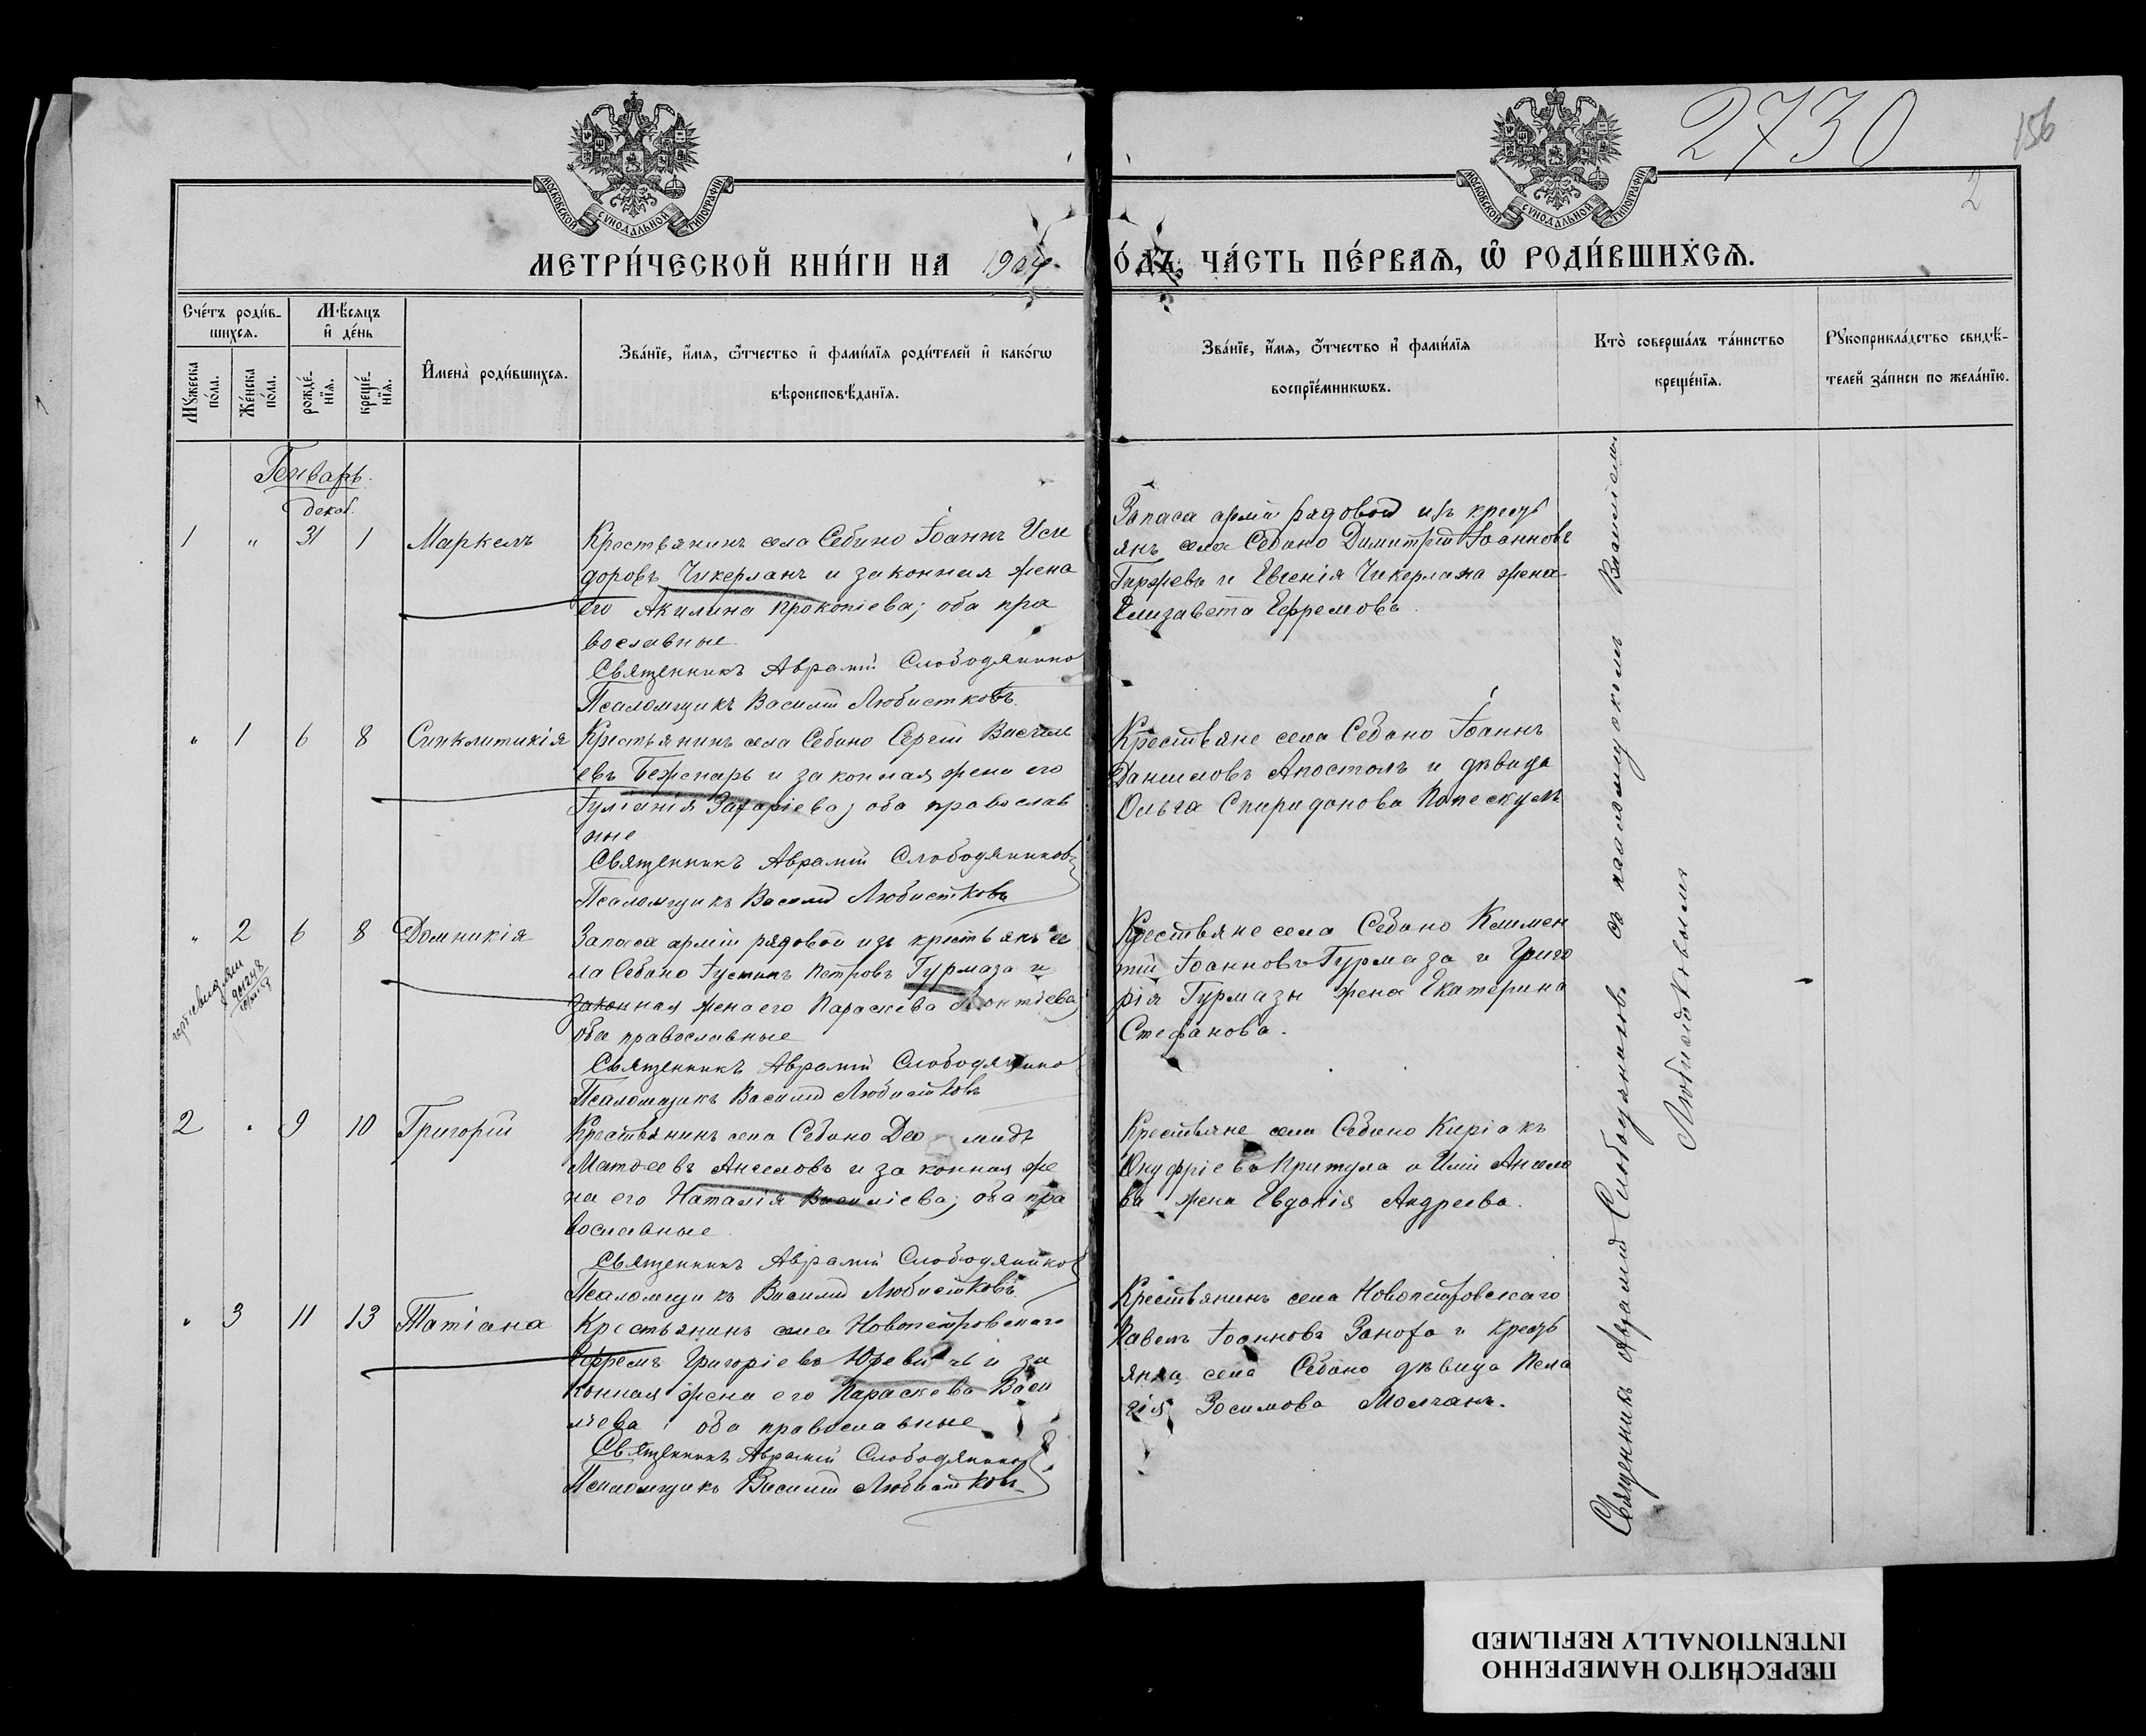 2730
156
2
МОСКОВСКОЙ СѴНОДАЛЬНОЙ ТИПОГРАФІИ
МОСКОВСКОЙ СѴНОДАЛЬНОЙ ТИПОГРАФІИ
МЕТРИ́ЧЕСКОЙ КНИ́ГИ НА 1904
О́ДЪ, ЧА́СТЬ ПЕ́РВАѦ, Ѿ РОДИ́ВШИХСѦ.
Сче́тъ роди́в-
шихсѧ.
Мѣ́сѧцъ
и҆ де́нь
Мꙋ́жеска
по́ла.
Же́нска
по́ла.
рожде́-
нїѧ.
креще́-
нїѧ.
И҆мена̀ роди́вшихсѧ.
Зва́нїе, и҆́мѧ, ѻ҆́тчество и҆ фами́лїѧ роди́телей и҆ како́гѡ
вѣроисповѣ́данїѧ.
Зва́нїе, и҆́мѧ, ѻ҆́тчество и҆ фами́лїѧ
воспрїе́мникѡвъ.
Кто̀ соверша́лъ та́инство
креще́нїѧ.
Рꙋкоприкла́дство свидѣ́-
телей за́писи по жела́нїю.
Генварь.
декаб.
1 " 31 1 Маркелъ
Крестьянинъ села Себино Іоаннъ Иси
доровъ Чикерланъ и законная жена
его Акилина Прокопіева; оба пра
вославные
Священникъ Аврамій Слободянико
Псаломщикъ Василій Любистковъ.
Запаса арміи рядовой изъ кресть
янъ села Себино Димитрій Іоанновъ
и Евгенія Чикерлана жена
Елизавета Ефремова.
" 1 6 8 Синклитикія
Крестьянинъ села Себино Сергій Василь
евъ Беженарь и законная жена его
Іуліанія Захаріева; оба православ
ные
Священникъ Аврамій Слободяников
Псаломщикъ Василій Любистковъ
Крестьяне села Себино Іоаннъ
Данииловъ Апостолъ и дѣвица
Ольга Спиридонова
" 2 6 8 Домникія
Запаса арміи рядовой изъ крестьянъ се
ла Себино Іустинъ Петровъ Гурмаза и
законная жена его Параскева Леонтіева;
оба православные
Священникъ Аврамій Слободянико
Псаломщикъ Василій Любистковъ
Крестьяне села Себино Климен
тій Іоанновъ Гурмаза и Григо
рія Гурмазы жена Екатерина
Стефанова.
2 " 9 10 Григорій
Крестьянинъ села Себино
Матѳеевъ Ангеловъ и законная же
на его Наталія Василіева; оба пра
вославные.
Священникъ Аврамій Слободянико
Псаломщикъ Василій Любистковъ
Крестьяне села Себино Киріакъ
Онуфріевъ Притула и Иліи Ангело
ва жена Евдокія Андреева.
" 3 11 13 Татіана
Крестьянинъ села Новопетровскаго
Ефремъ Григоріевъ Юревичъ и за
конная жена его Параскева Васи
льева оба православные
Священникъ Аврамій Слободянико
Псаломщикъ Василій Любистковъ
Крестьянинъ села Новопетровскаго
Павелъ Іоанновъ и кресть
янка села Себино дѣвица Пела
гія Зосимова Молчанъ.
Священникъ Аврамій Слободяниковъ съ псаломщикомъ Василіемъ
Любистковымъ
ПЕРЕСНЯТО НАМЕРЕННО
INTENTIONALLY REFILMED